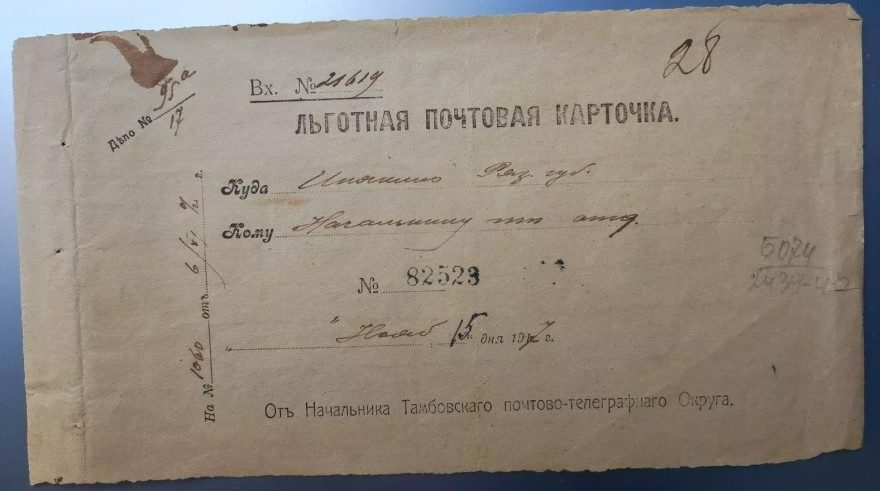 28
Вх. № 21619
Дѣло № 95а/17
ЛЬГОТНАЯ ПОЧТОВАЯ КАРТОЧКА.
Куда Ряз. губ.
Кому Начальнику пт отд.
№ 82523
" Нояб 15 дня 1917 г.
На № 1060 отъ 6/VI г.
5074
Отъ Начальника Тамбовскаго почтово-телеграфнаго Округа.